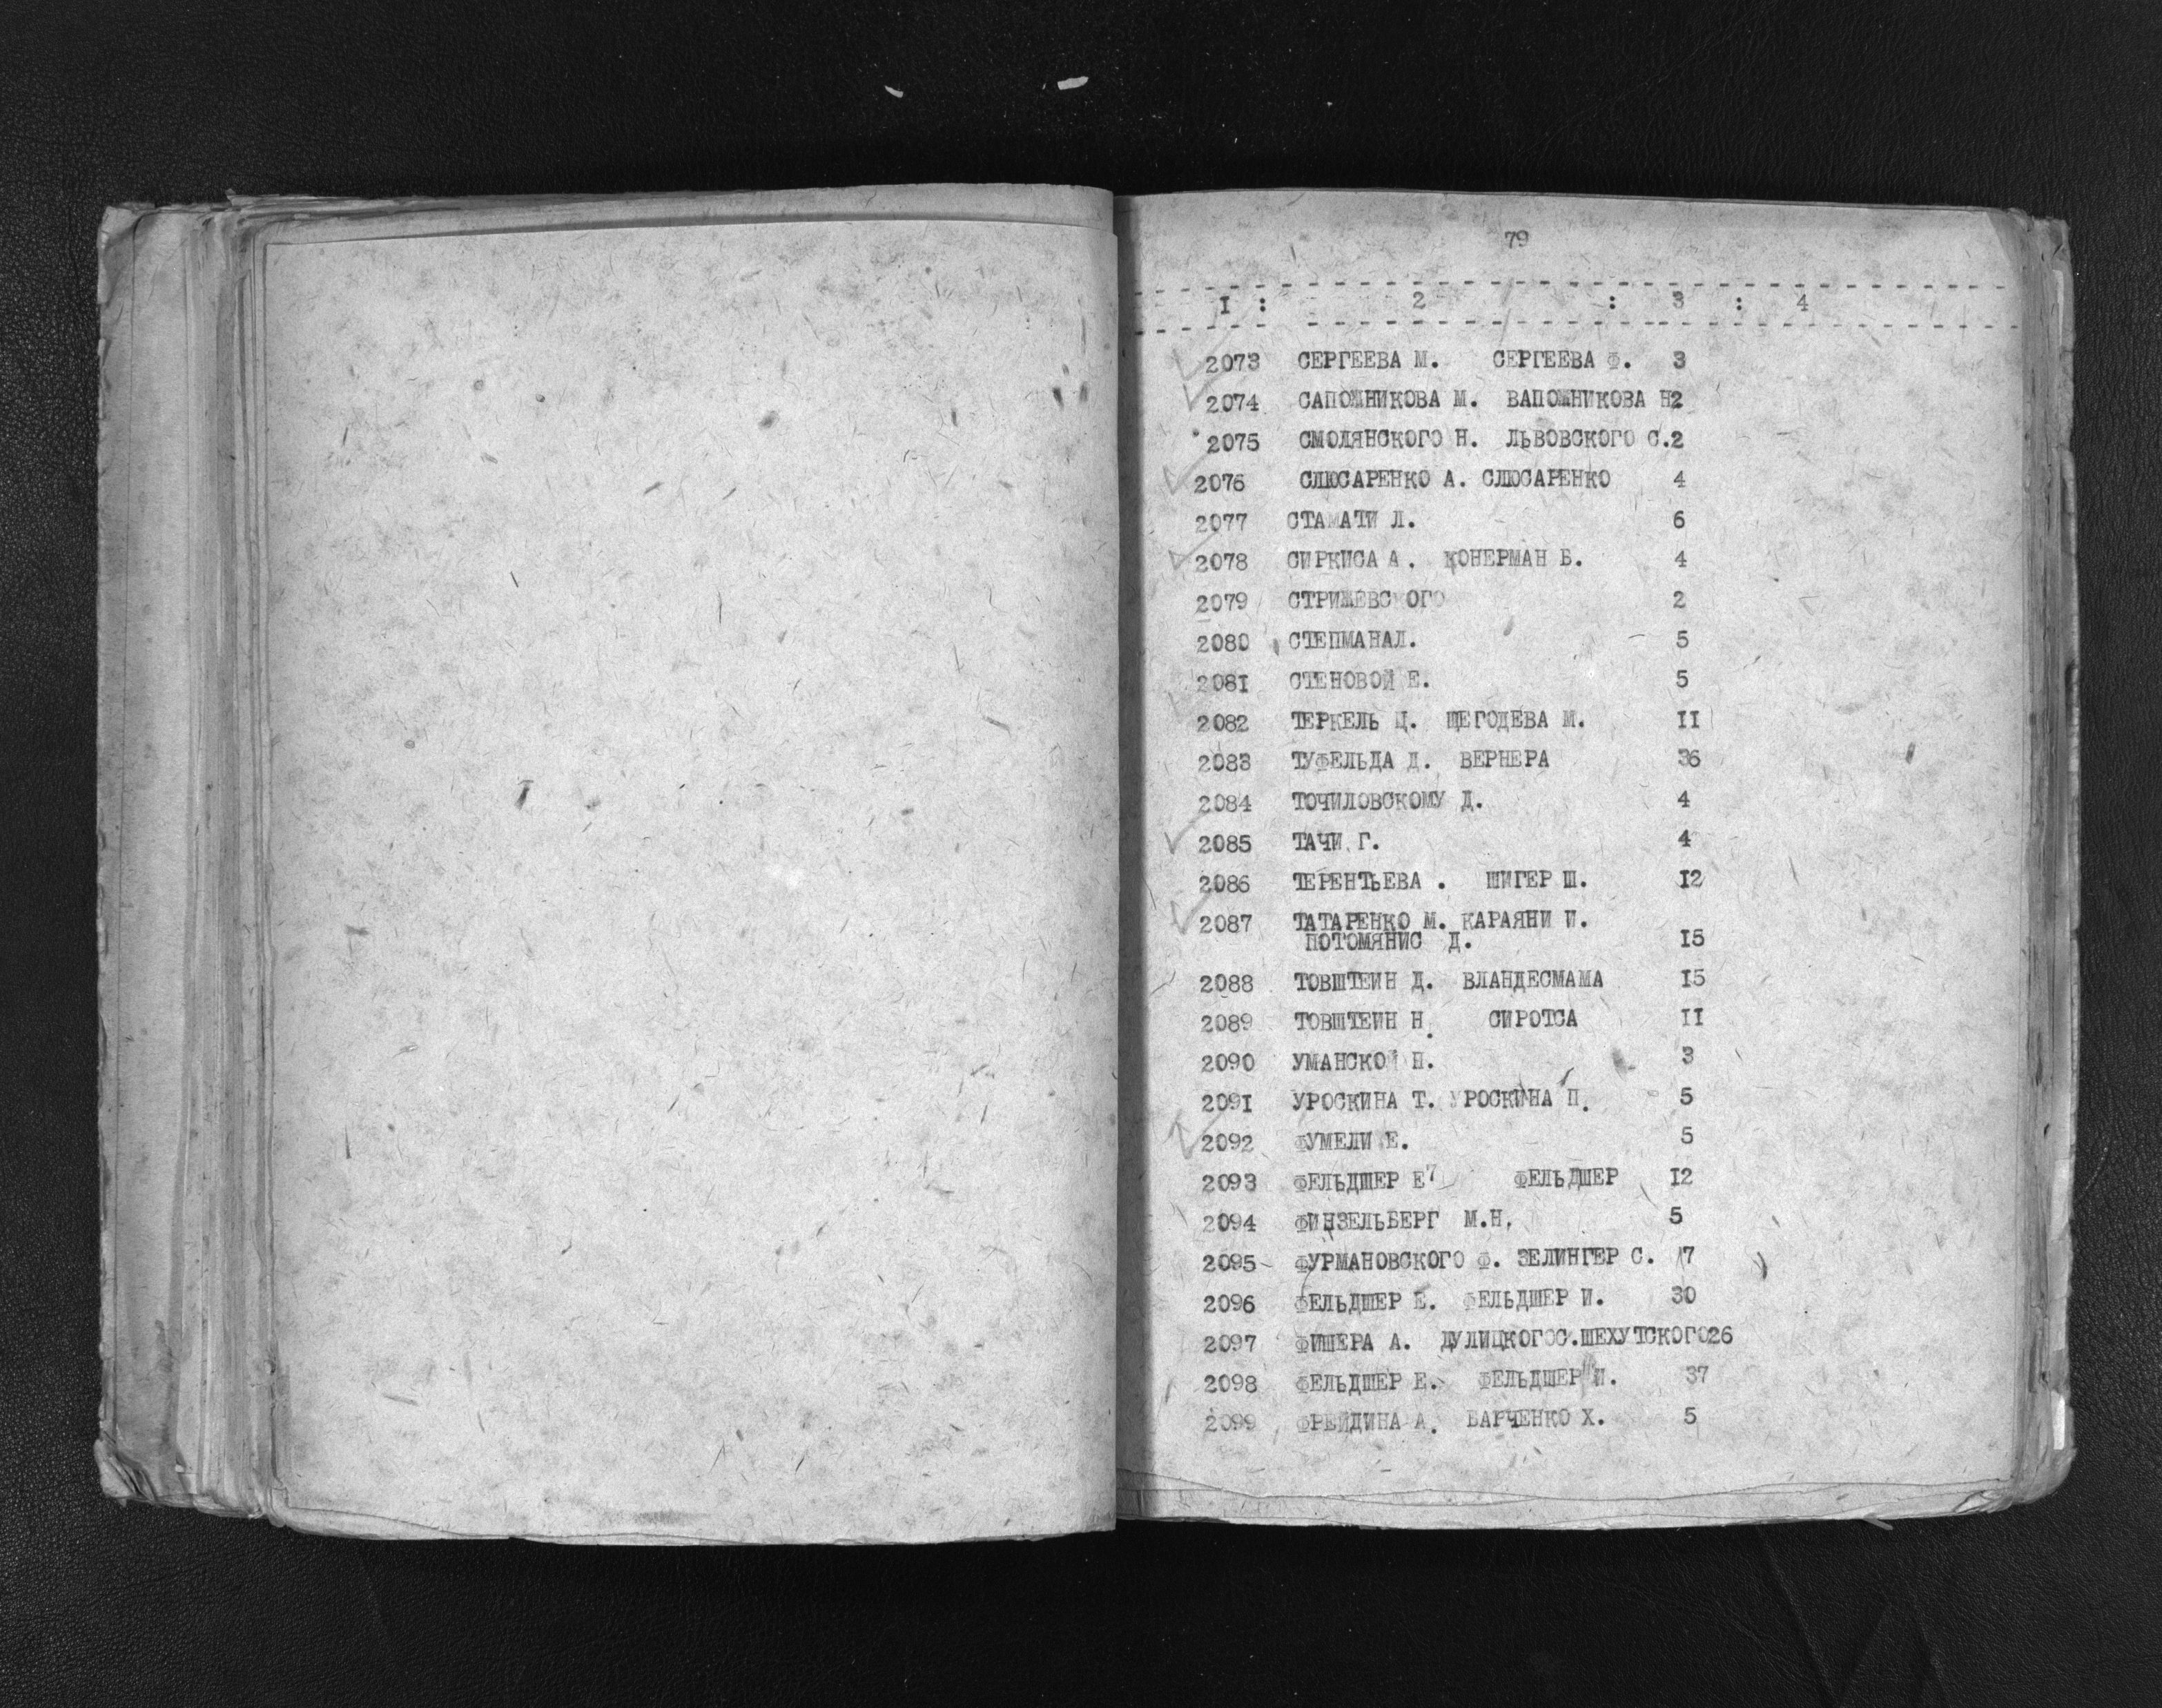 79
I : 2 : 3 : 4
2073 СЕРГЕЕВА М. СЕРГЕЕВА Ф. 3
2074 САПОЖНИКОВА М. ВАПОЖНИКОВА Н2
2075 СМОЛЯНСКОГО Н. ЛЬВОВСКОГО С.2
2076 СЛЮСАРЕНКО А. СЛЮСАРЕНКО 4
2077 СТАМАТИ Л. 6
2078 СИРКИСА А. КОНЕРМАН Б. 4
2079 СТРИЖЕВСКОГО 2
2080 СТЕПМАНАЛ. 5
2081 СТЕНОВОЙ Е. 5
2082 ТЕРКЕЛЬ Ц. ЩЕГОДЕВА М. II
2083 ТУФЕЛЬДА Д. ВЕРНЕРА 36
2084 ТОЧИЛОВСКОМУ Д. 4
2085 ТАЧИ Г. 4
2086 ТЕРЕНТЬЕВА . ШИГЕР Ш. I2
2087 ТАТАРЕНКО М. КАРАЯНИ И.
ПОТОМЯНИС Д. I5
2088 ТОВШТЕИН Д. ВЛАНДЕСМАМА I5
2089 ТОВШТЕИН Н. СИРОТСА II
2090 УМАНСКОЙ Н. 3
2091 УРОСКИНА Т. УРОСКИНА П. 5
2092 ФУМЕЛИ Е. 5
2093 ФЕЛЬДШЕР Е7 ФЕЛЬДШЕР I2
2094 ФИНЗЕЛЬБЕРГ М.Н. 5
2095 ФУРМАНОВСКОГО Ф. ЗЕЛИНГЕР С. 7
2096 ФЕЛЬДШЕР Е. ФЕЛЬДШЕР И. 30
2097 ФИШЕРА А. ДУЛИЦКОГОС.ШЕХУТСКОГО26
2098 ФЕЛЬДШЕР Е. ФЕЛЬДШЕР И. 37
2099 ФРЕЙДИНА А. ВАРЧЕНКО Х. 5